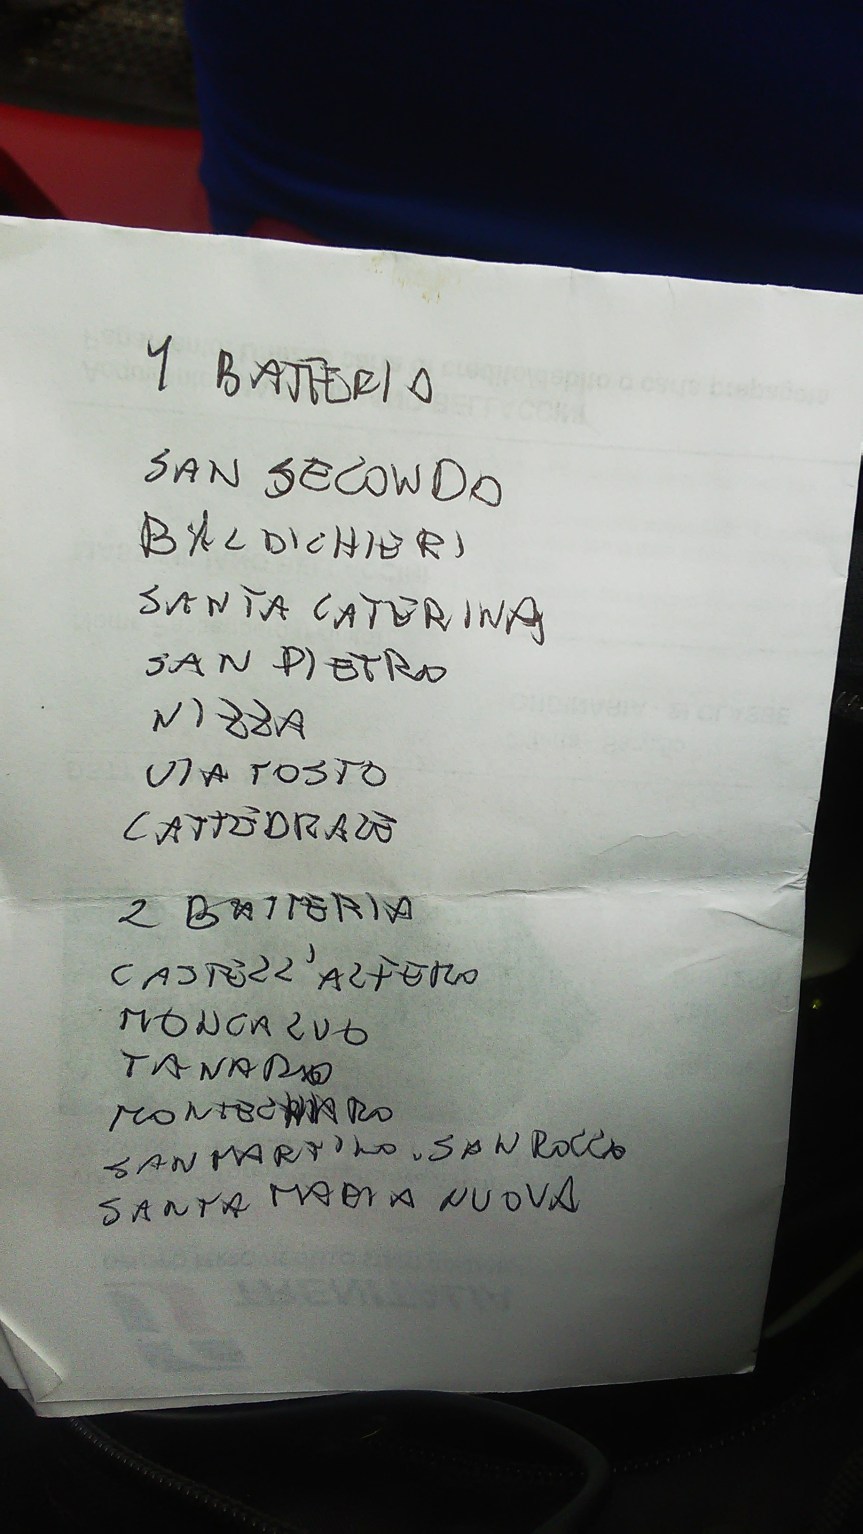 1 BATTERIA
SAN SECONDO
BALDICHIERI
SANTA CATERINA
SAN PIETRO
NIZZA
VIA TOSTO
CATTEDRALE
2 BATTERIA
CASTELL'ALFERO
MONCALVO
TANARO
MONTECHIARO
SAN MARTINO. SAN ROCCO
SANTA MARIA NUOVA